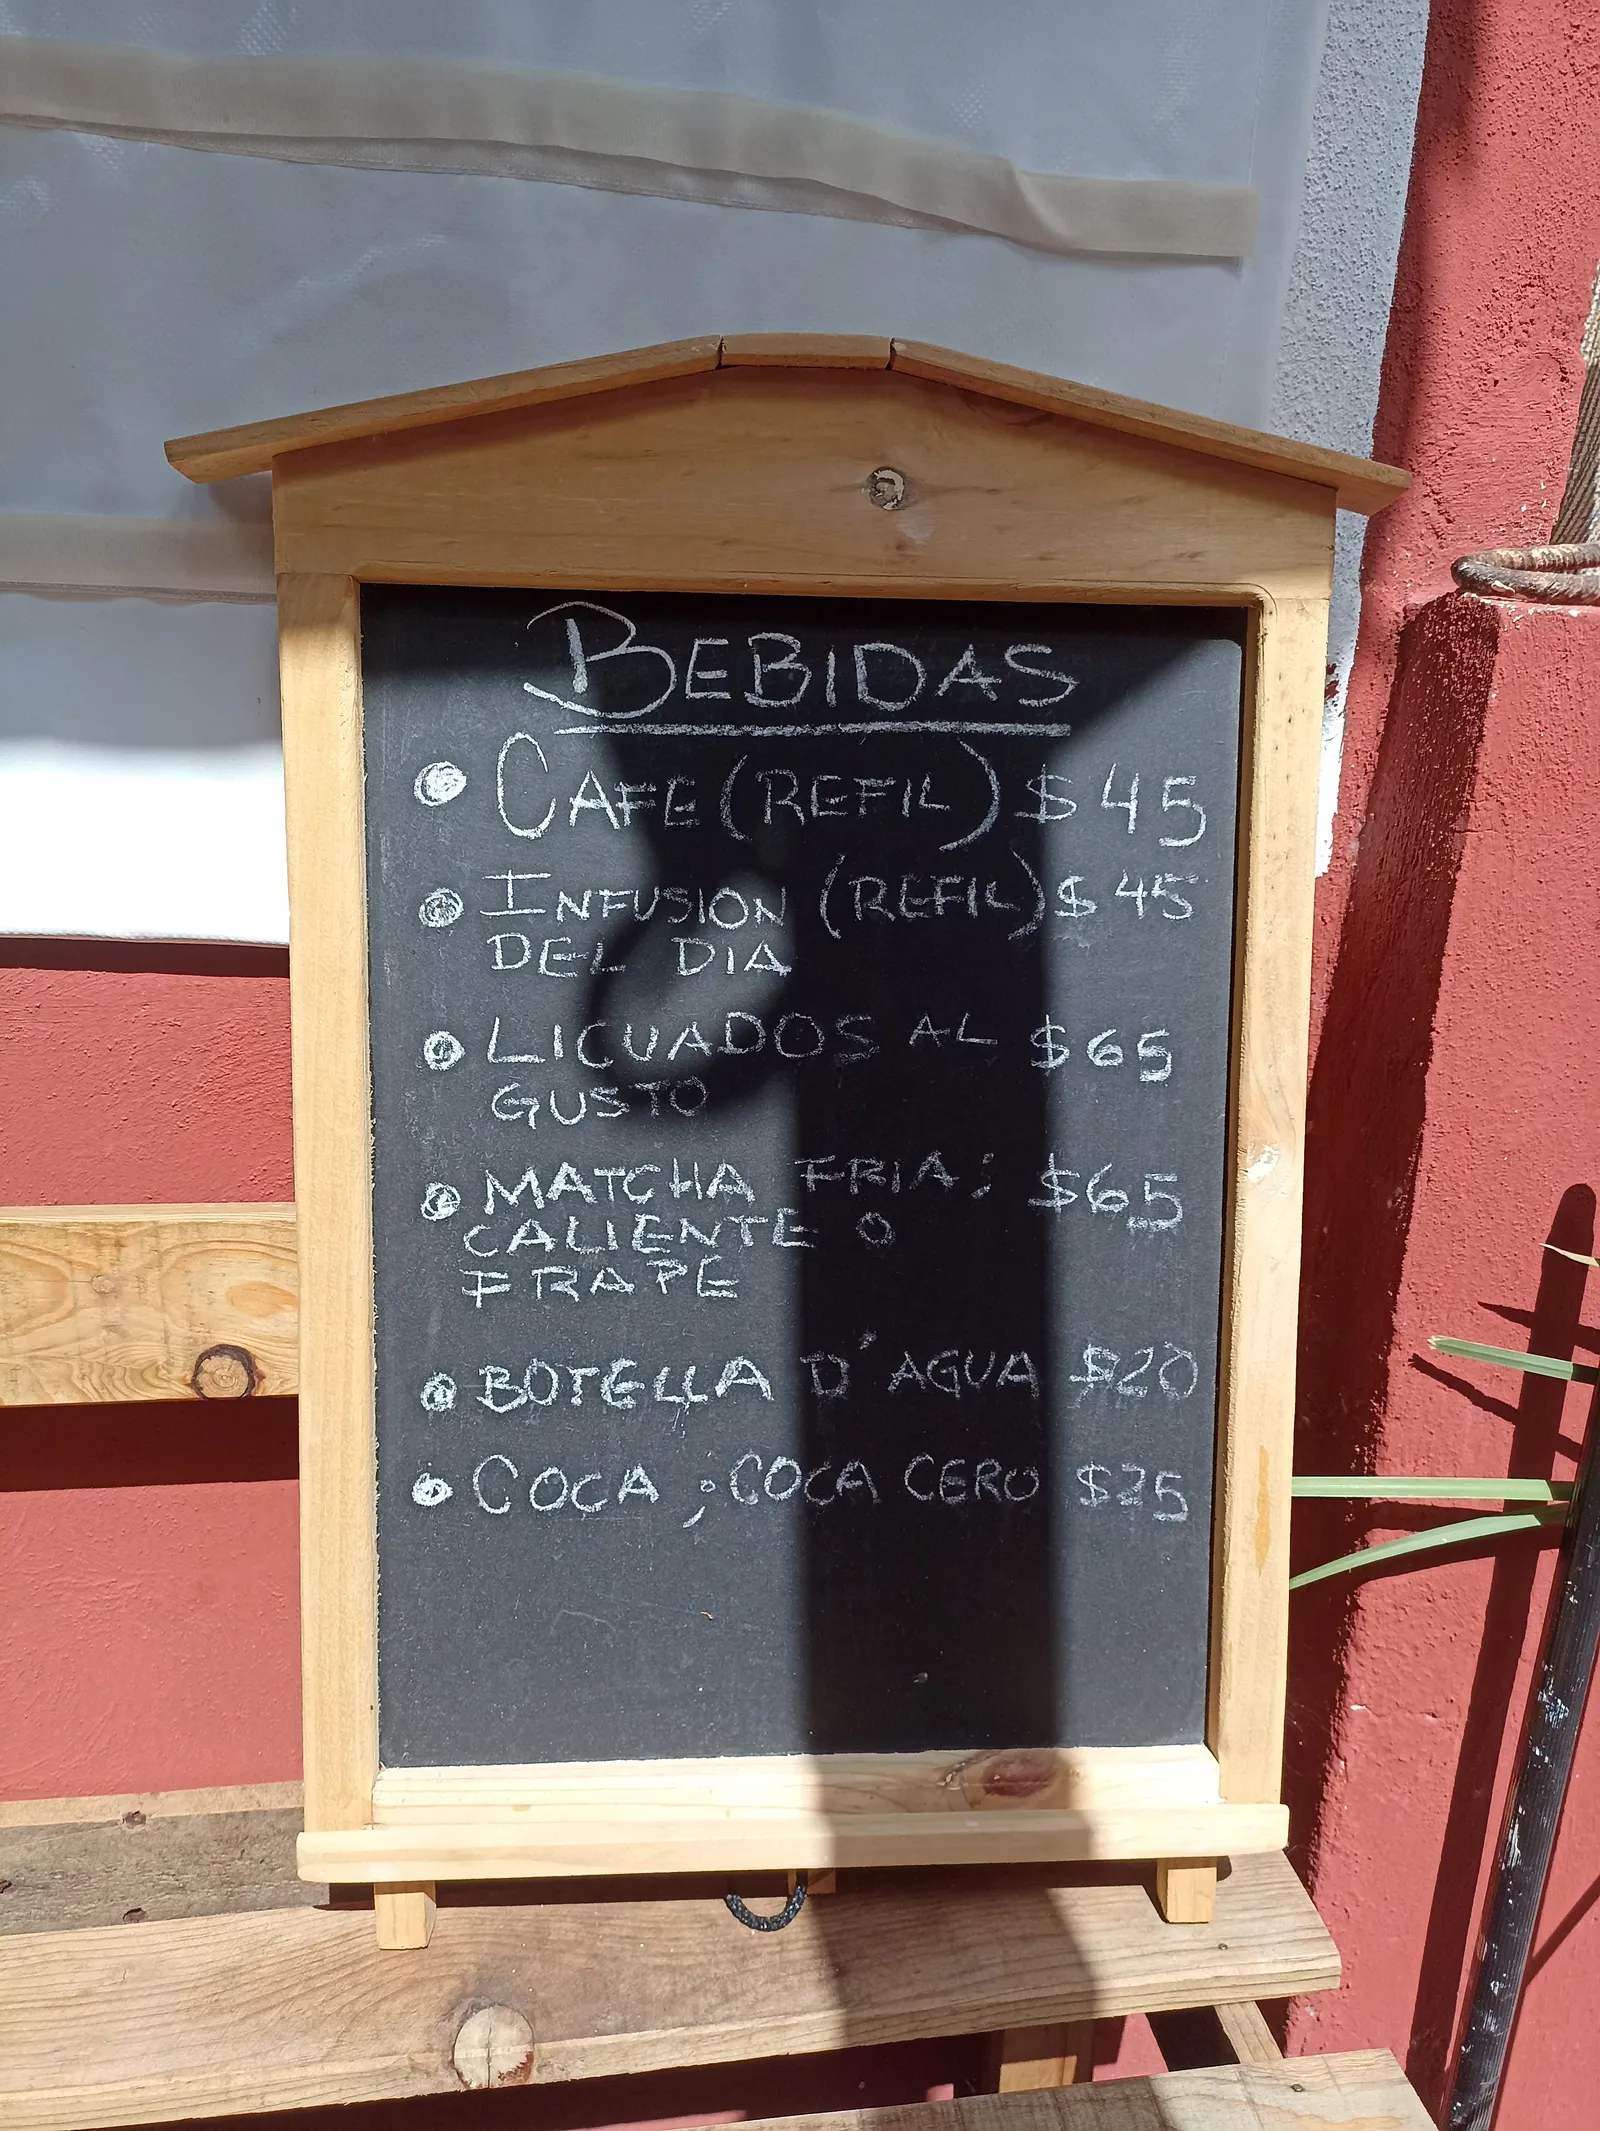 BEBIDAS
CAFE (REFIL) $45
INFUSION (REFIL) $45
DEL DIA
LICUADOS AL $65
GUSTO
MATCHA FRIA; $65
CALIENTE O
FRAPE
BOTELLA D'AGUA $20
COCA ; COCA CERO $25